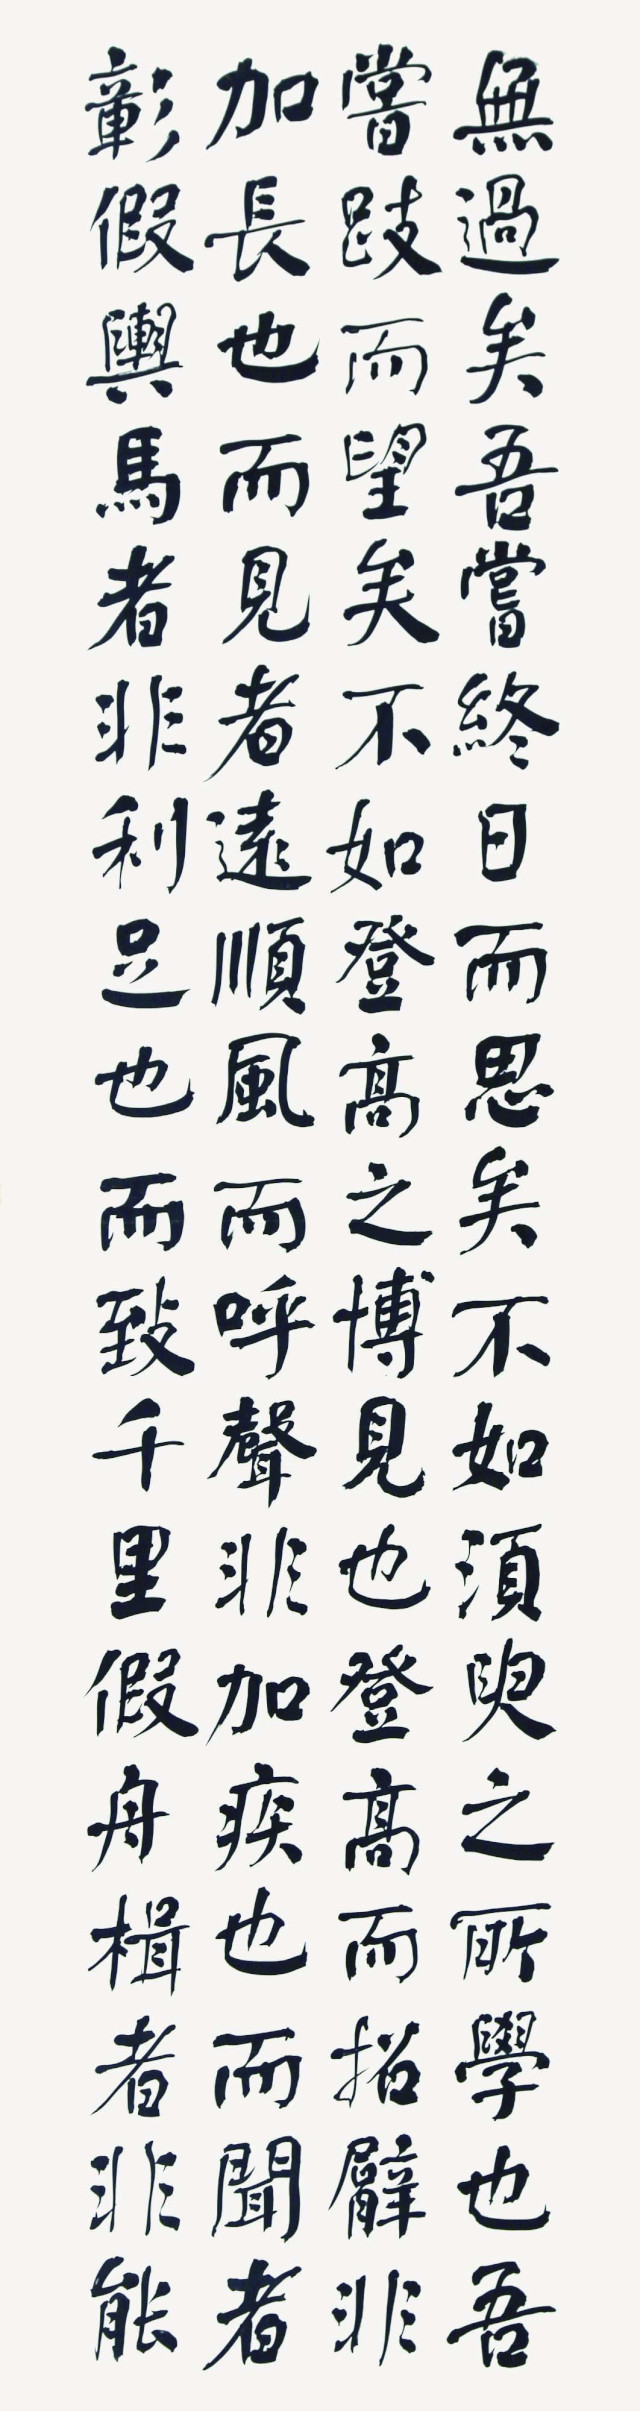 無過矣吾嘗終日而思矣不如須臾之所學也吾
嘗跂而望矣不如登高之博見也登高而招臂非
加長也而見者遠順風而呼聲非加疾也而聞者
彰假輿馬者非利足也而致千里假舟楫者非能